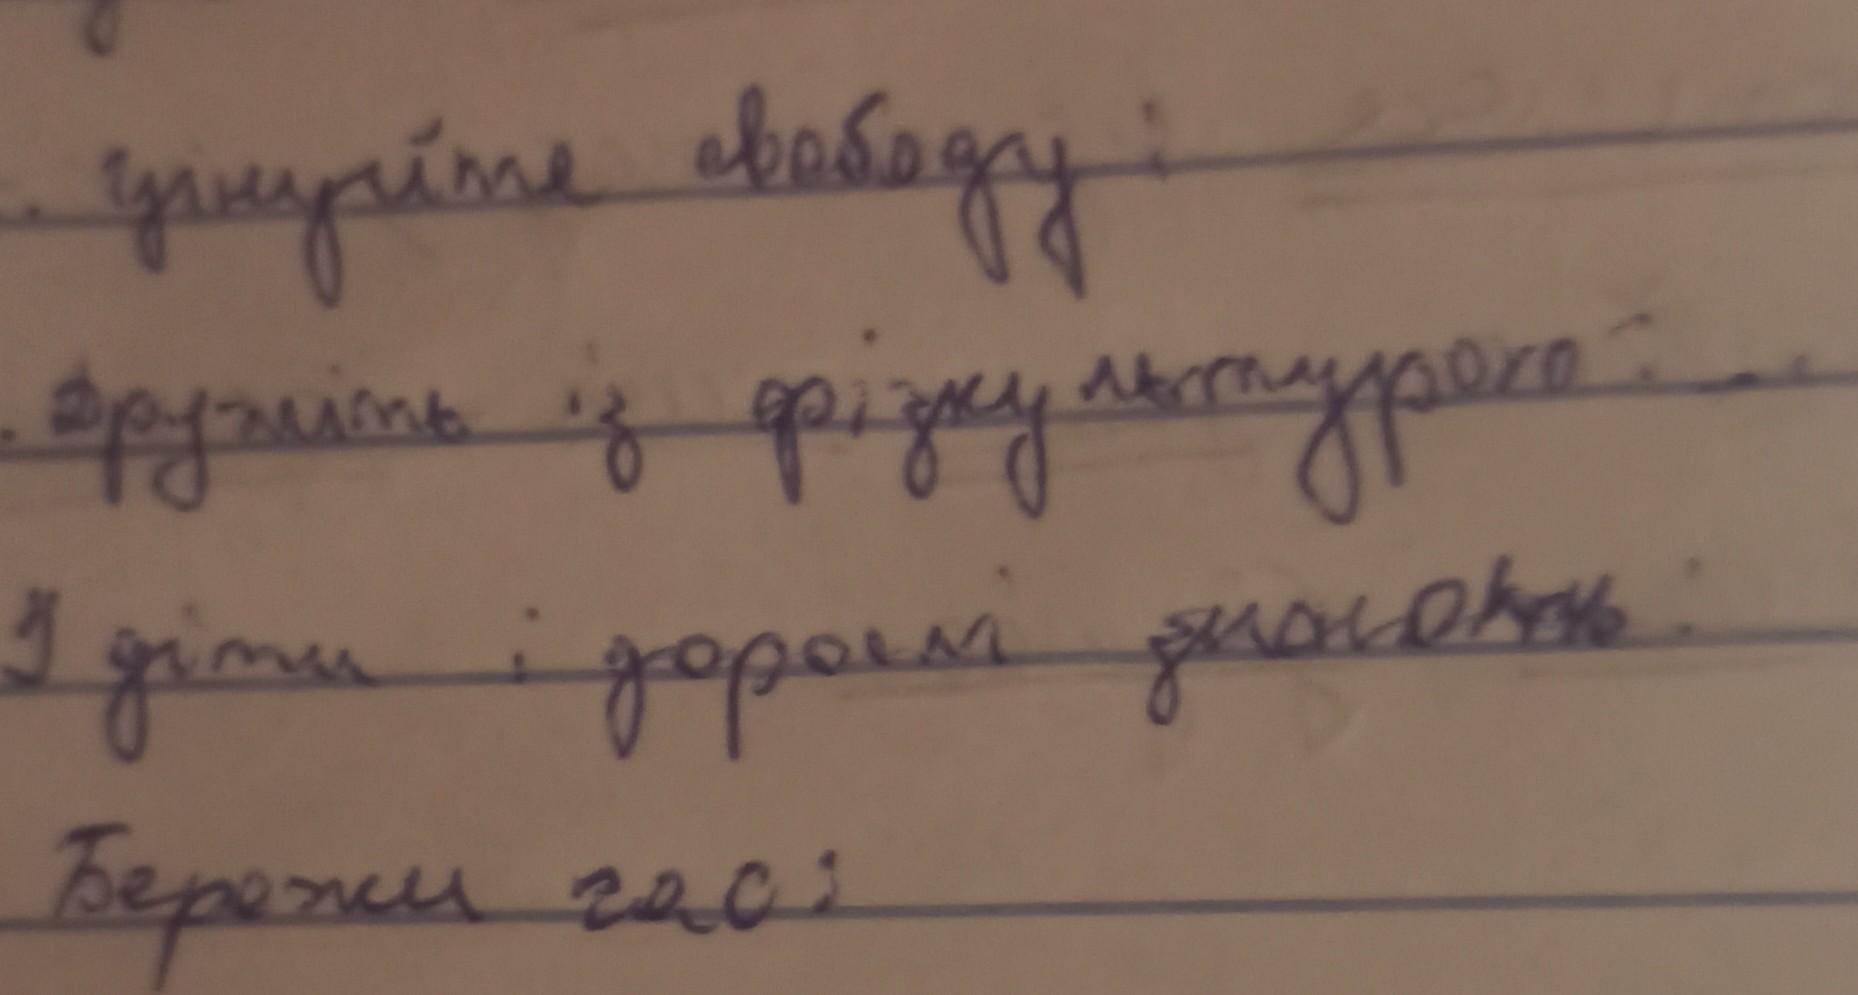 . цінуйте свободу :
. Дружіть із фізкультурою : _ .
І діти і дорослі знають :
Бережи час :